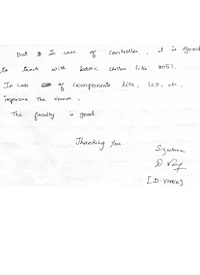 But In case of controller, it is good
to teach with basic like 8051.
In case of components like, LCD, etc.
improve the
The faculty is good.
Thanking you
Signature
[D. VIVEK]